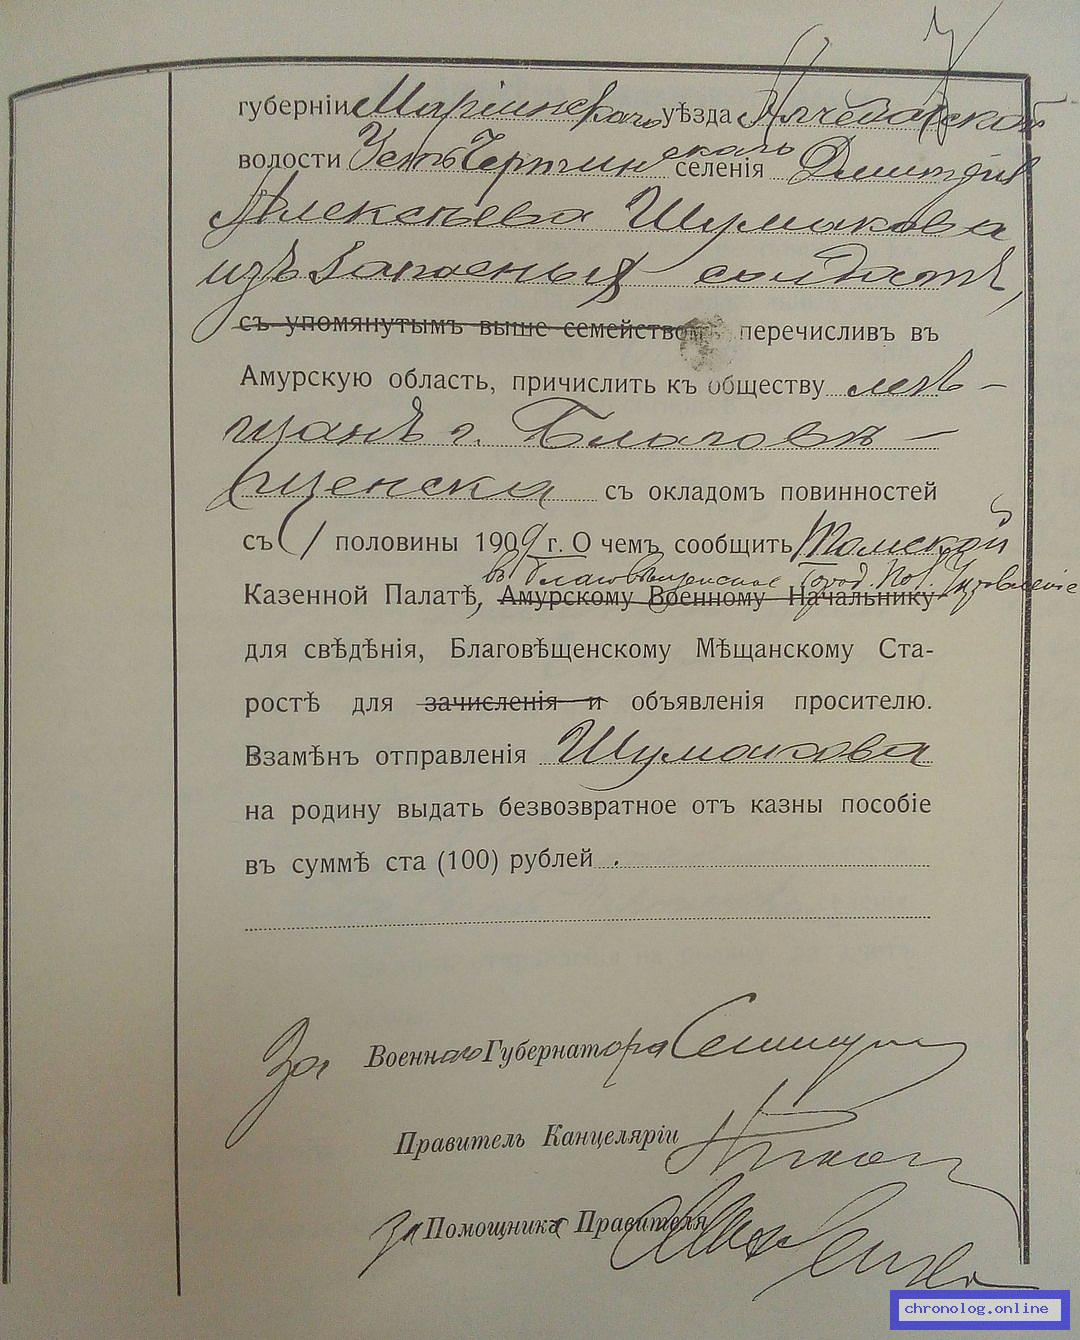 губерніи Маріинскаго уѣзда Почитанской
волости Усть Чертинскаго селенія Дмитрія
Алексѣева Шумакова
изъ запасныхъ солдатъ,
съ упомянутымъ выше семействомъ перечисливъ въ
Амурскую область, причислить къ обществу мѣ-
щанъ г. Благовѣ-
щенска съ окладомъ повинностей
съ 1 половины 1909 г. О чемъ сообщить Томской
въ Благовѣщенское Город. Пол. Управленіе
Казенной Палатѣ, Амурскому Военному Начальнику
для свѣдѣнія, Благовѣщенскому Мѣщанскому Ста-
ростѣ для зачисленія и объявленія просителю.
Взамѣнъ отправленія Шумакова
на родину выдать безвозвратное отъ казны пособіе
въ суммѣ ста (100) рублей.
За Военнаго Губернатора
Правитель Канцеляріи
За Помощника Правителя
chronolog.online